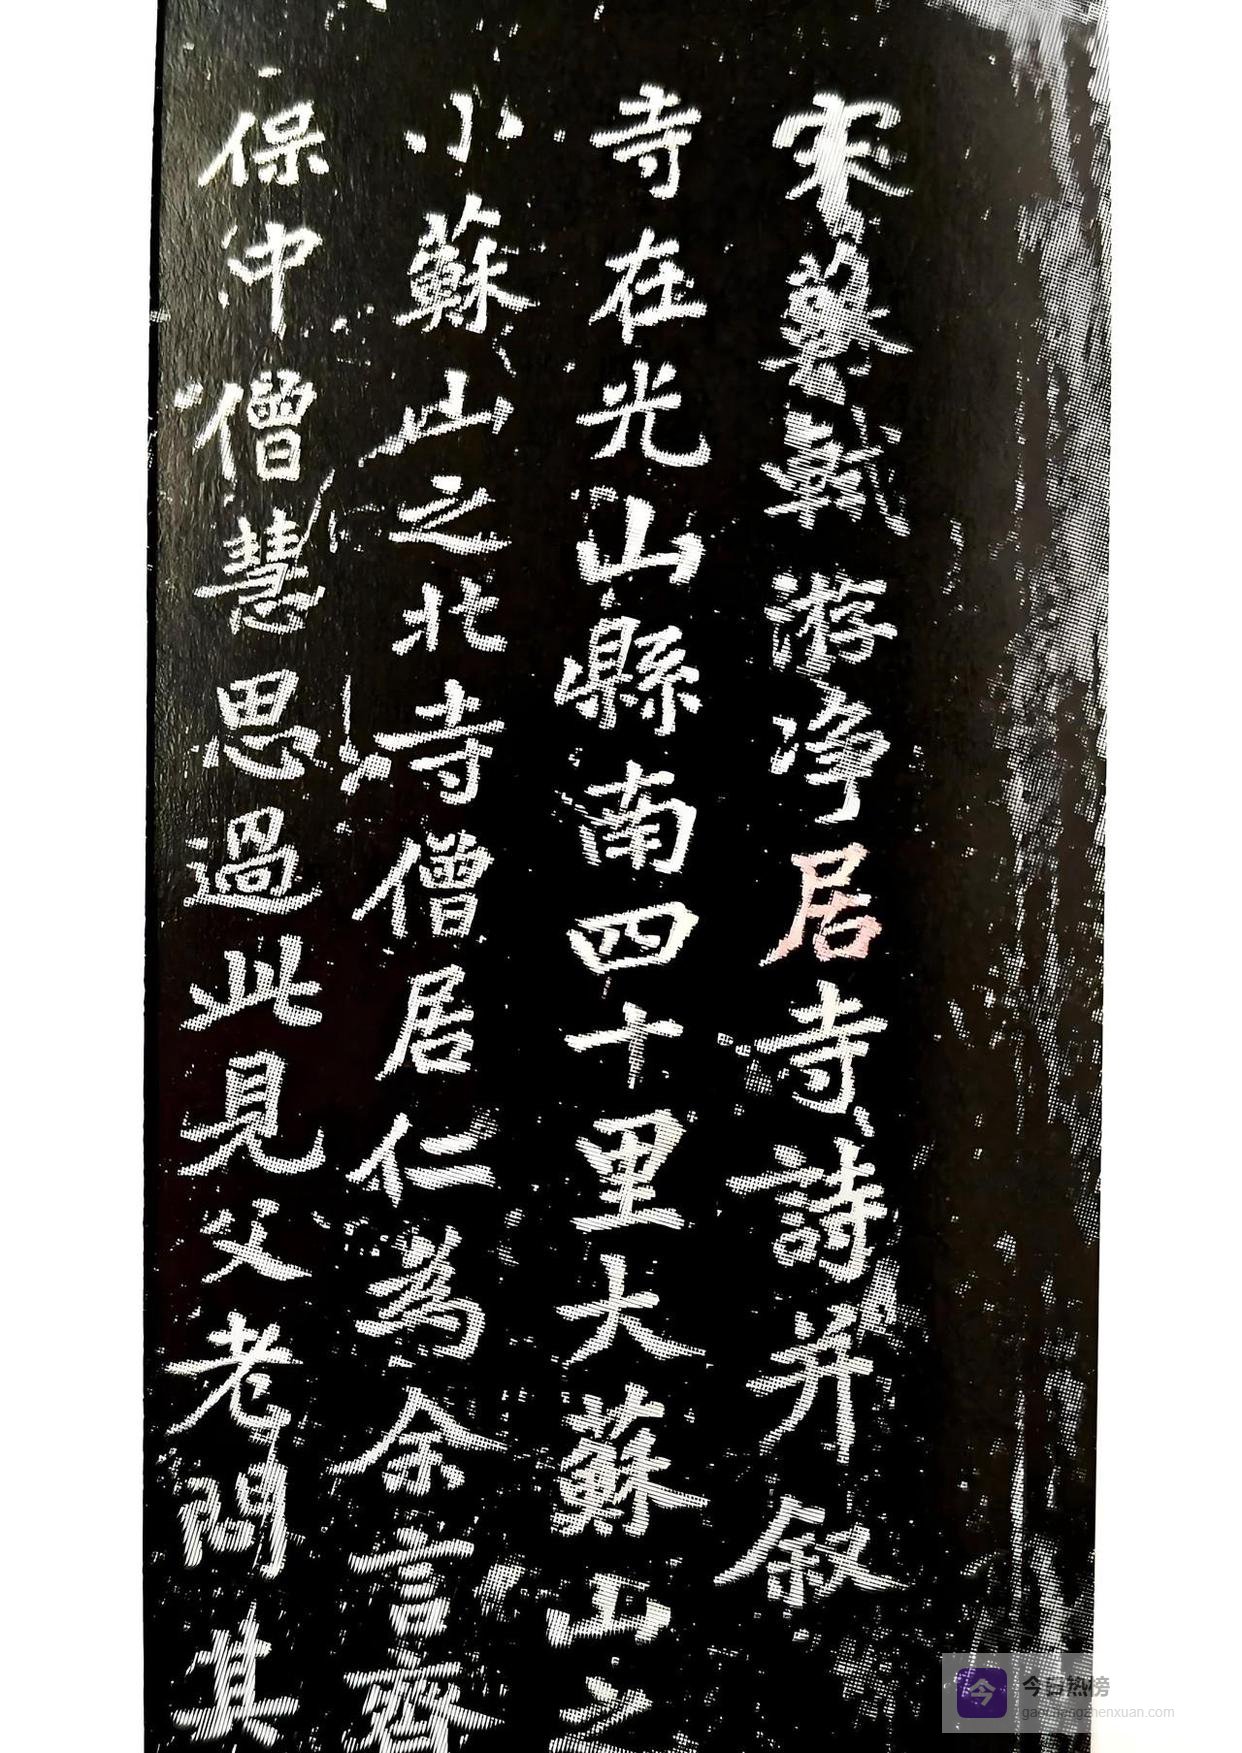 宋蘇軾游淨居寺詩并敘
寺在光山縣南四十里大蘇山之
小蘇山之北寺僧居仁為余言齊
保中僧慧思過此見父老問其
今日热榜
gaofengzhenxuan.com